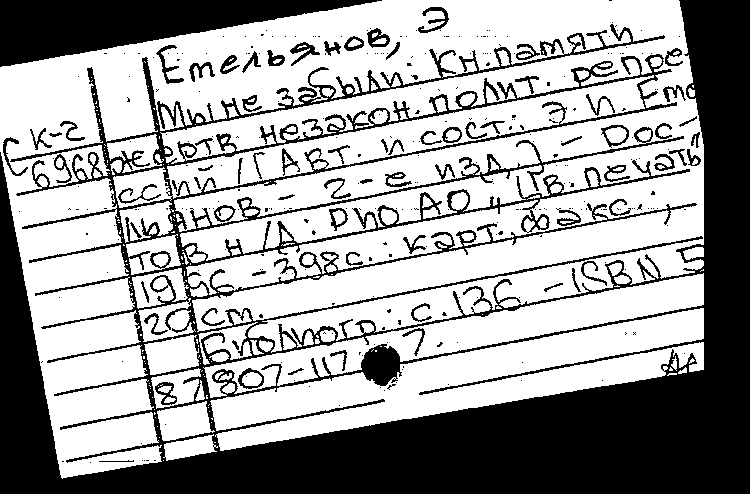 Емельянов, Э
Мы не забыли: Кн. памяти
К-2
6968 жертв незакон. полит. репре-
ссий / [Авт. и сост.: Э. И. Еме
льянов. - 2-е изд.]. - Рос-
тов н/Д: РИО АО "Цв. печать"
1996. - 398с.: карт., факс.;
20 см.
Библиогр.: с. 136. - ISBN 5
87807-117 7.